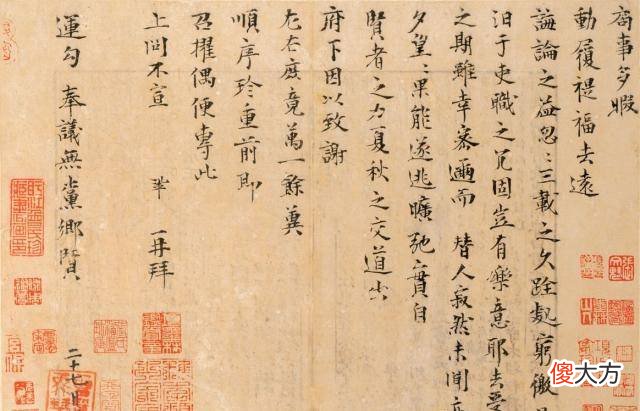 局事多暇
動履禔福去遠
誨論之益忽〻三載之久跧處窮徼
汩于吏職之冗固豈有樂意耶去受
之期雖幸密邇而 替人寂然未聞亦
夕望〻果能遂逃曠弛實自
賢者之力夏秋之交道出
府下因以致謝
左右庶竟萬一餘冀
順序珍重前即
召擢偶便專此
上問不宣 鞏 再拜
運勾奉議無黨鄉賢 二十七日
傻大方